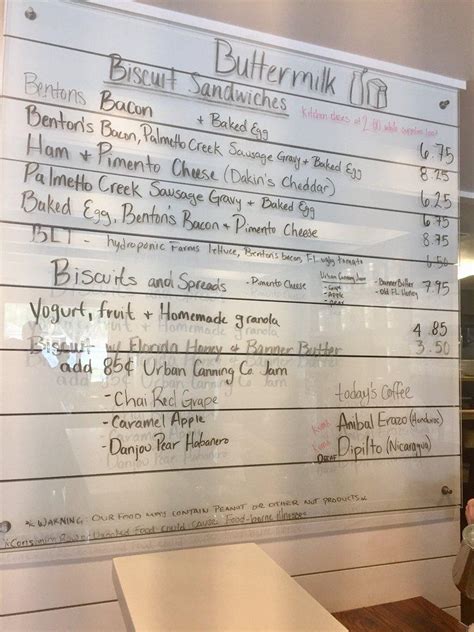 Buttermilk
Biscuit Sandwiches
Kitchen closes at 2:00
Bentons Bacon + Baked Egg 6.75
Benton's Bacon, Palmetto Creek Sausage Gravy + Baked Egg 8.25
Ham + Pimento Cheese (Dakin's Cheddar) 6.25
Palmetto Creek Sausage Gravy + Baked Egg 6.75
Baked Egg, Benton's Bacon + Pimento Cheese 8.75
BLT - hydroponic Farms lettuce, Benton's bacon, FL ugly tomato 6.50
Biscuits and Spreads - Pimento Cheese Urban Canning Jam - Banner Butter 7.95
- Grape - Old FL Honey
- Apple
- Pear
Yogurt, fruit + Homemade granola 4.85
Biscuit w/ Florida Honey + Banner Butter 3.50
add 85¢ Urban Canning Co. Jam
- Chai Red Grape
- Caramel Apple
- Danjou Pear Habanero
today's Coffee
Kuma Anibal Erazo (Honduras)
Kuma Dipilto (Nicaragua)
Decaf
* WARNING: OUR FOOD MAY CONTAIN PEANUT OR OTHER NUT PRODUCTS *
*Consuming Raw or Undercooked Food could cause Food-borne illnesses